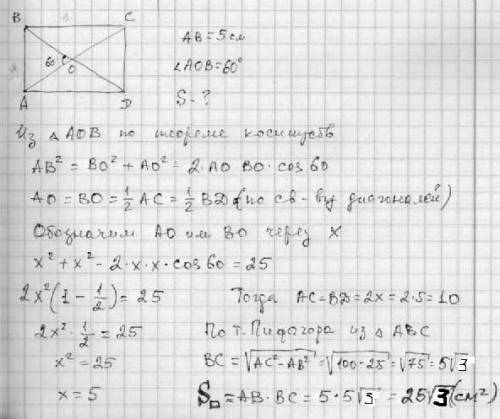 B C
60 O
A D
AB = 5 см
∠AOB = 60°
S - ?
Из △ AOB по теореме косинусов
AB² = BO² + AO² = 2·AO BO·cos 60
AO = BO = 1/2 AC = 1/2 BD (по св-ву диагоналей)
Обозначим AO или BO через x
x² + x² - 2·x·x·cos 60 = 25
2x²(1 - 1/2) = 25
2x²·1/2 = 25
x² = 25
x = 5
Тогда AC = BD = 2x = 2·5 = 10
По т. Пифагора из △ ABC
BC = √(AC² - AB²) = √(100 - 25) = √75 = 5√3
S▭ = AB·BC = 5·5√3 = 25√3 (см²)